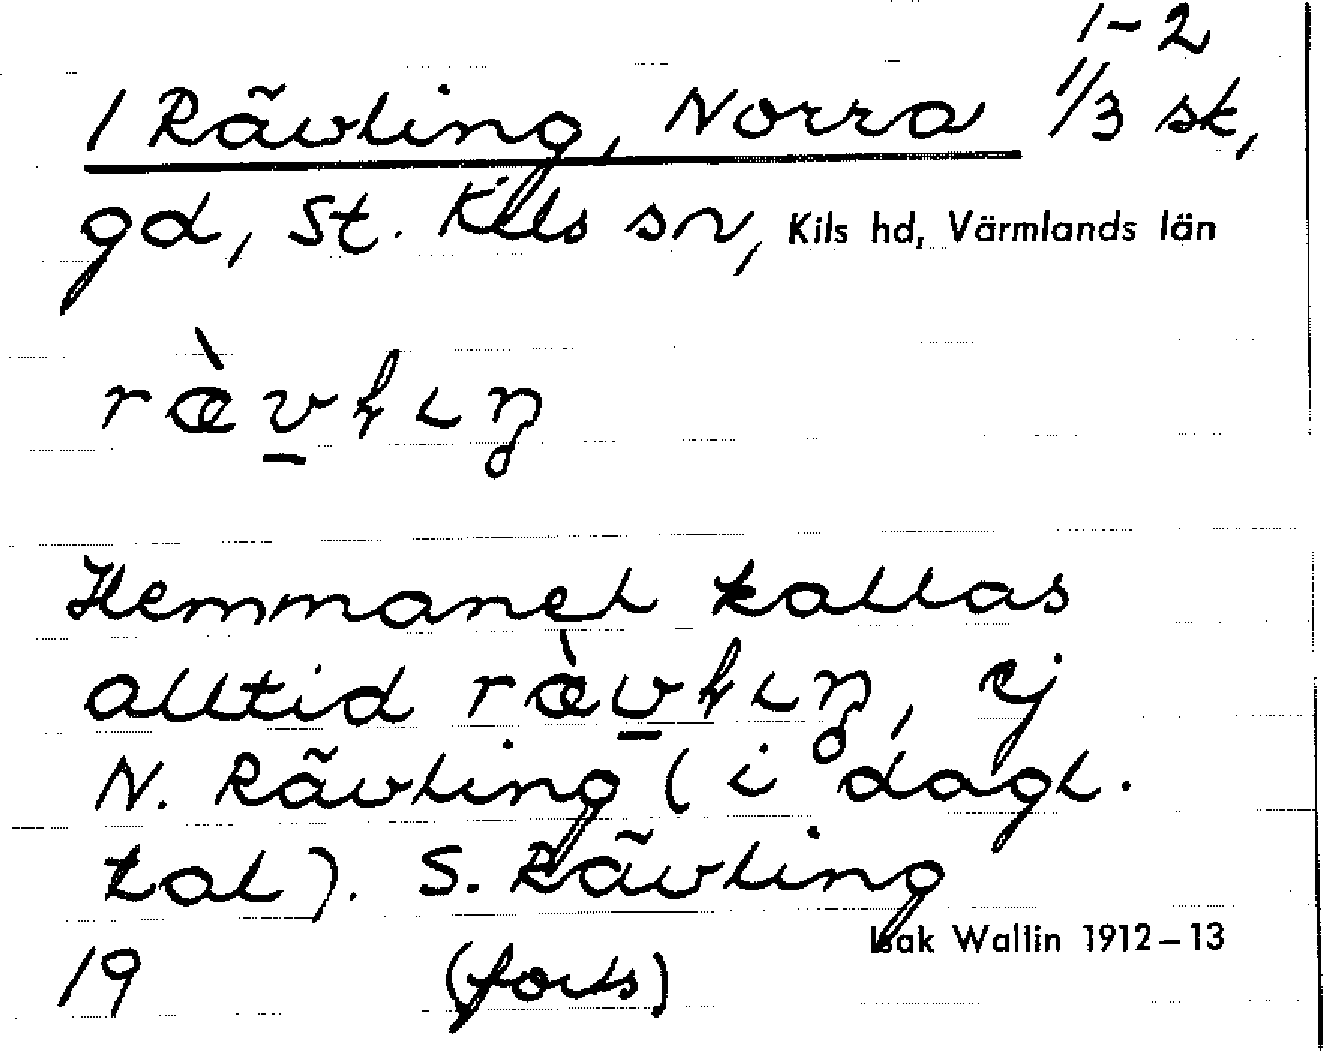 1-2
1 Rävling, Norra 1/3 sk,
gd, St. Kils sn, Kils hd, Värmlands län
Hemmanet kallas
alltid rævlıŋ, ej
N. Rävling (i dagl.
tal). S. Rävling
Isak Wallin 1912–13
19 (forts)